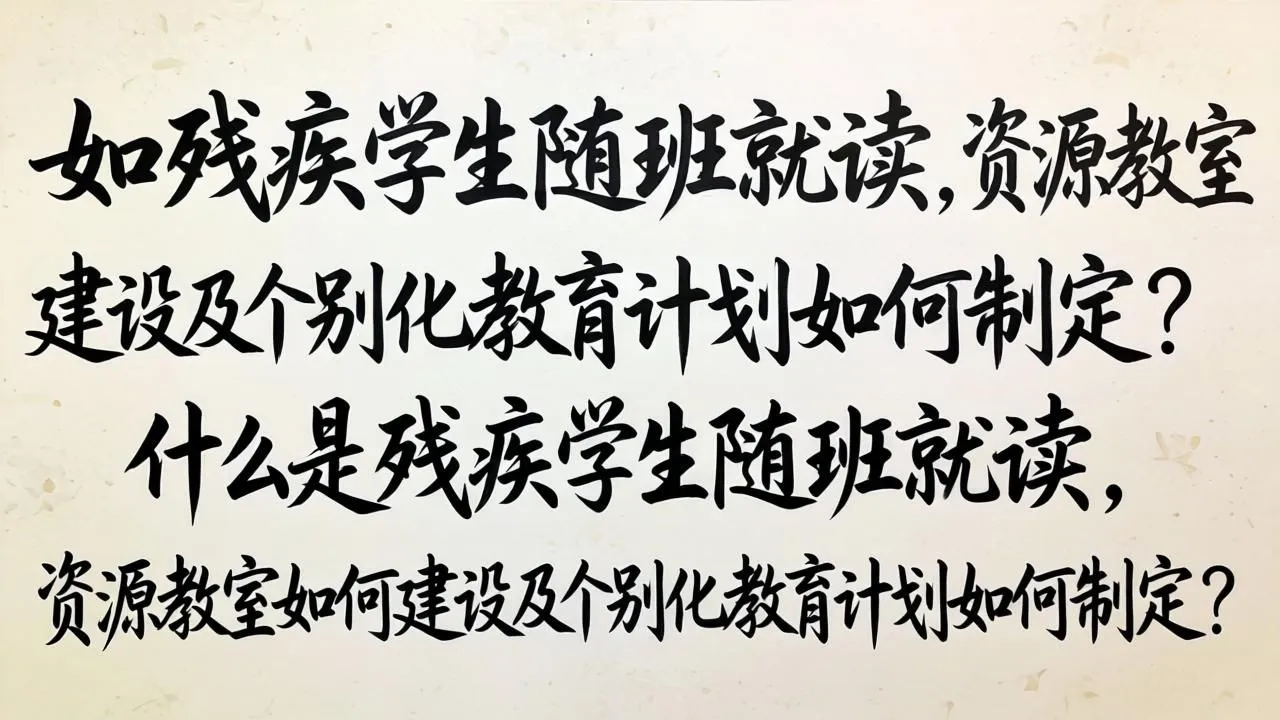 如残疾学生随班就读,资源教室
建设及个别化教育计划如何制定?
什么是残疾学生随班就读,
资源教室如何建设及个别化教育计划如何制定?